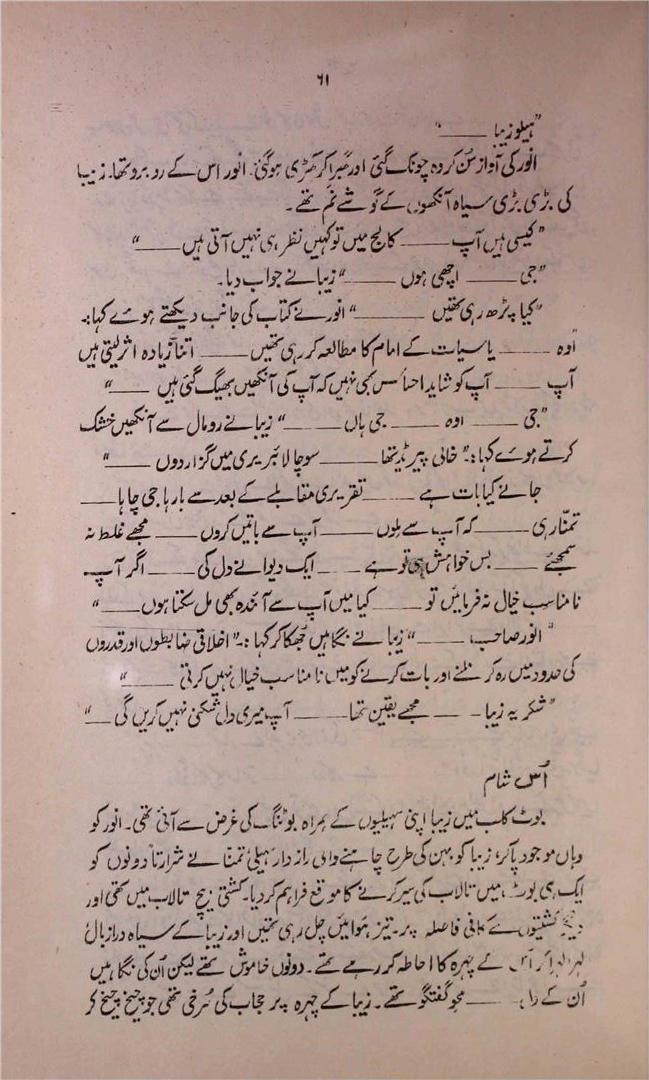 ۶۱
"ہیلو زیبا ——"
انور کی آواز سُن کر وہ چونک گئی اور گھبرا کر کھڑی ہو گئی۔ انور اس کے رو برو تھا۔ زیبا
کی بڑی بڑی سیاہ آنکھوں کے گوشے نم تھے۔
"کیسی ہیں آپ —— کالج میں تو کہیں نظر ہی نہیں آتی ہیں ——"
"جی —— اچھی ہوں ——" زیبا نے جواب دیا۔
"کیا پڑھ رہی تھیں ——" انور نے کتاب کی جانب دیکھتے ہوئے کہا:۔
"اوہ —— یاسیات کے امام کا مطالعہ کر رہی تھیں —— اتنا زیادہ اثر لیتی ہیں
آپ —— آپ کو شاید احساس بھی نہیں کہ آپ کی آنکھیں بھیگ گئی ہیں ——"
"جی —— اوہ —— جی ہاں ——" زیبا نے رومال سے آنکھیں خشک
کرتے ہوئے کہا:۔ "خالی پیریڈ تھا —— سوچا لائبریری میں گزار دوں ——"
جانے کیا بات ہے —— تقریری مقابلے کے بعد سے بارہا جی چاہا ——
تمنّا رہی —— کہ آپ سے ملوں —— آپ سے باتیں کروں —— مجھے غلط نہ
سمجھئے —— بس خواہش ہی تو ہے —— ایک دیوانے دل کی —— اگر آپ
نامناسب خیال نہ فرمائیں تو —— کیا میں آپ سے آئندہ بھی مل سکتا ہوں ——"
"انور صاحب ——" زیبا نے نگاہیں جُھکا کر کہا:۔ "اخلاقی ضابطوں اور قدروں
کی حدود میں رہ کر ملنے اور بات کرنے کو میں نامناسب خیال نہیں کرتی ——"
"شکریہ زیبا —— مجھے یقین تھا —— آپ میری دل شکنی نہیں کریں گی ——"
اُس شام
بوٹ کلب میں زیبا اپنی سہیلیوں کے ہمراہ بوٹنگ کی غرض سے آئی تھی۔ انور کو
وہاں موجود پا کر، زیبا کو بہن کی طرح چاہنے والی راز دار سہیلی تمنّا نے شرارتاً دونوں کو
ایک ہی بوٹ میں تالاب کی سیر کرنے کا موقع فراہم کر دیا۔ کشتی بیچ تالاب میں تھی اور
دیگر کشتیوں سے کافی فاصلہ پر۔ تیز ہوائیں چل رہی تھیں اور زیبا کے سیاہ دراز بال
لہرا لہرا کر اُس کے چہرہ کا احاطہ کر رہے تھے۔ دونوں خاموش تھے لیکن اُن کی نگاہیں
اُن کے دل —— محو گفتگو تھے۔ زیبا کے چہرہ پر حجاب کی سُرخی تھی جو چیخ چیخ کر